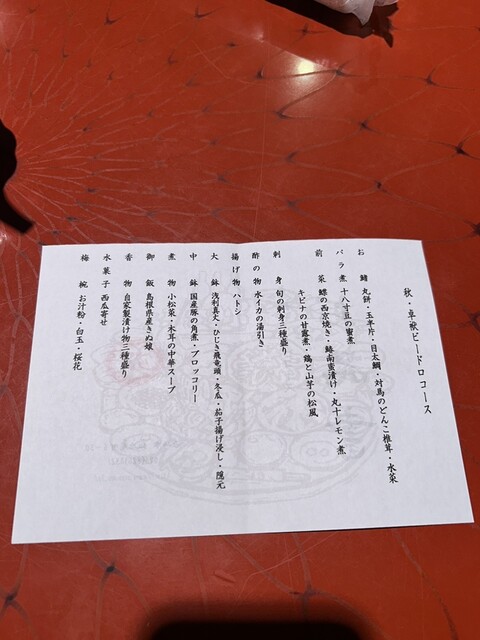 秋・卓袱ビードロコース
お鰭 丸餅・玉半片・目太鯛・対馬のどんこ椎茸・水菜
パラ煮 十八寸豆の蜜煮
前菜 鰈の西京焼き・鰊南蛮漬け・丸十レモン煮
キビナの甘露煮・鶏と山芋の松風
刺身 旬の刺身三種盛り
酢の物 水イカの湯引き
揚げ物 ハトシ
大鉢 浅利真丈・ひじき飛竜頭・冬瓜・茄子揚げ浸し・隠元
中鉢 国産豚の角煮・ブロッコリー
煮物 小松菜・木耳の中華スープ
御飯 島根県産きぬ娘
香物 自家製漬け物三種盛り
水菓子 西瓜寄せ
梅椀 お汁粉・白玉・桜花